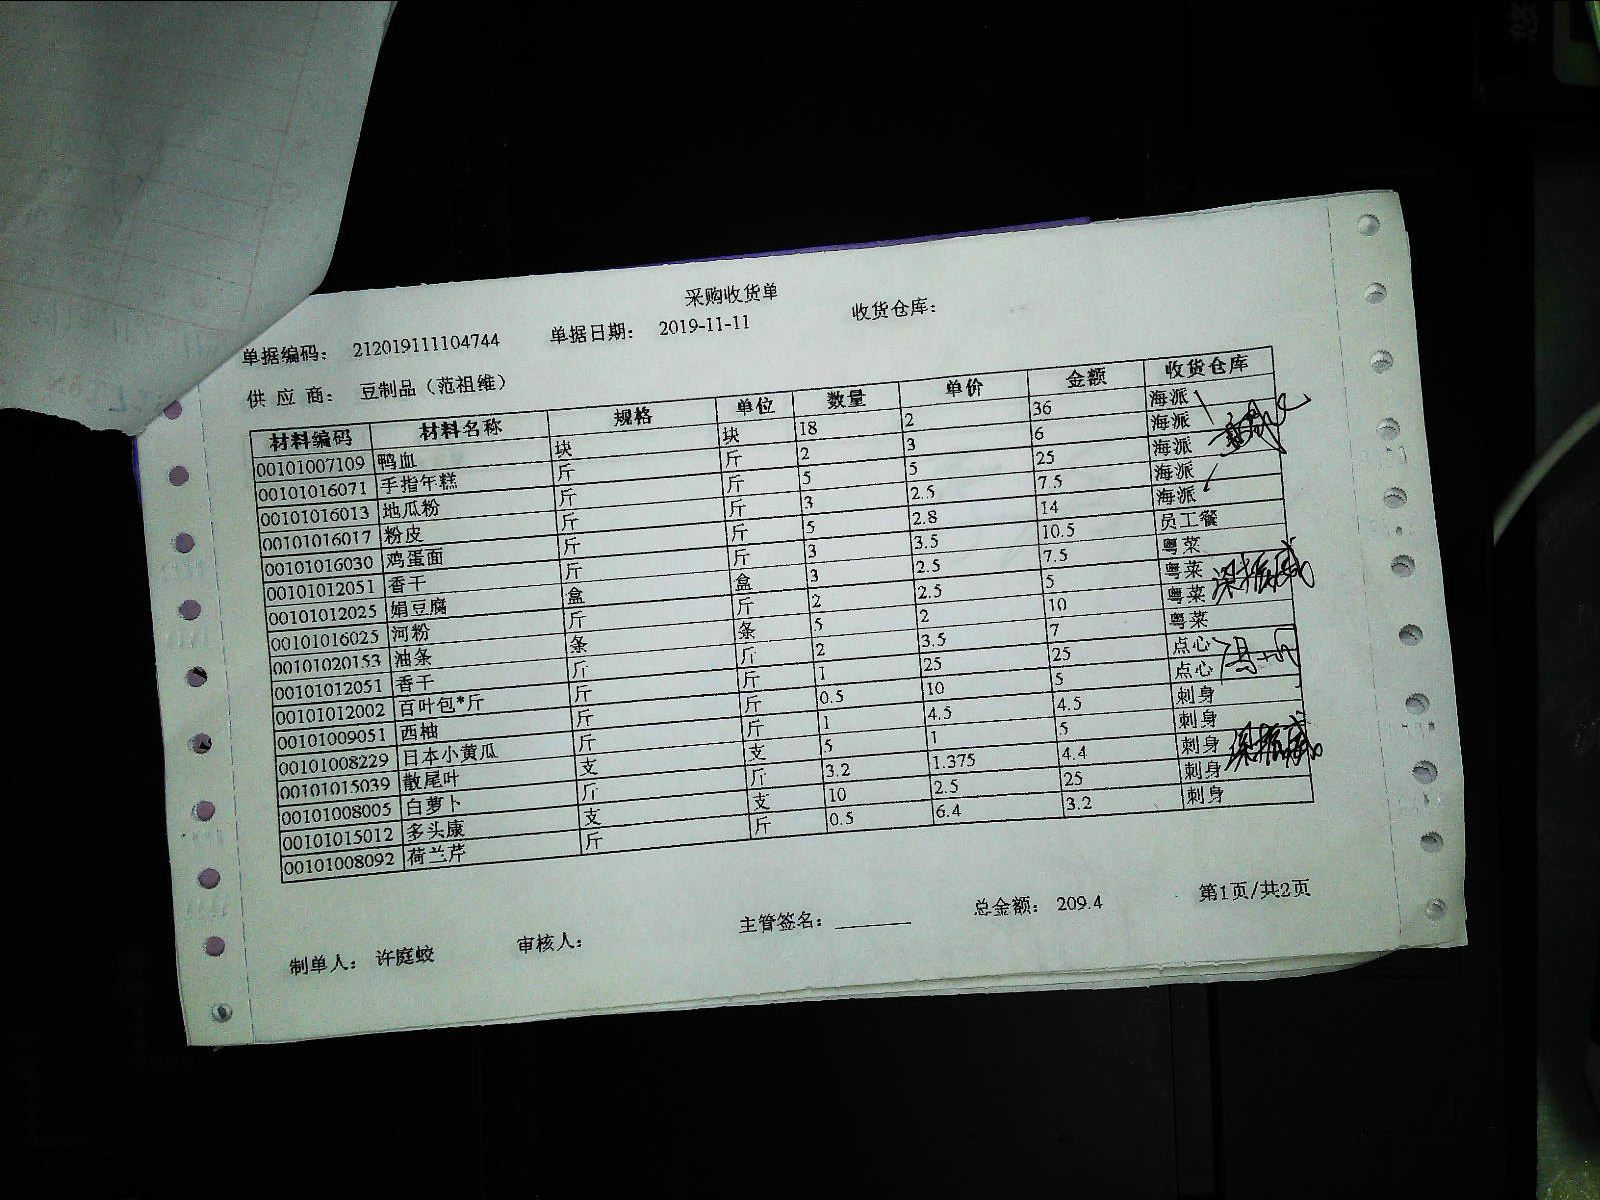 采购收货单
单据编码： 212019111104744 单据日期： 2019-11-11 收货仓库：
供 应 商： 豆制品（范祖维）
材料编码 材料名称 规格 单位 数量 单价 金额 收货仓库
00101007109 鸭血 块 块 18 2 36 海派
00101016071 手指年糕 斤 斤 2 3 6 海派
00101016013 地瓜粉 斤 斤 5 5 25 海派
00101016017 粉皮 斤 斤 3 2.5 7.5 海派
00101016030 鸡蛋面 斤 斤 5 2.8 14 海派
00101012051 香干 斤 斤 3 3.5 10.5 员工餐
00101012025 娟豆腐 盒 盒 3 2.5 7.5 粤菜
00101016025 河粉 斤 斤 2 2.5 5 粤菜
00101020153 油条 条 条 5 2 10 粤菜
00101012051 香干 斤 斤 2 3.5 7 粤菜
00101012002 百叶包*斤 斤 斤 1 25 25 点心
00101009051 西柚 斤 斤 0.5 10 5 点心
00101008229 日本小黄瓜 斤 斤 1 4.5 4.5 刺身
00101015039 散尾叶 支 支 5 1 5 刺身
00101008005 白萝卜 斤 斤 3.2 1.375 4.4 刺身
00101015012 多头康 支 支 10 2.5 25 刺身
00101008092 荷兰芹 斤 斤 0.5 6.4 3.2 刺身
制单人： 许庭蛟 审核人： 主管签名： 总金额： 209.4 第1页/共2页